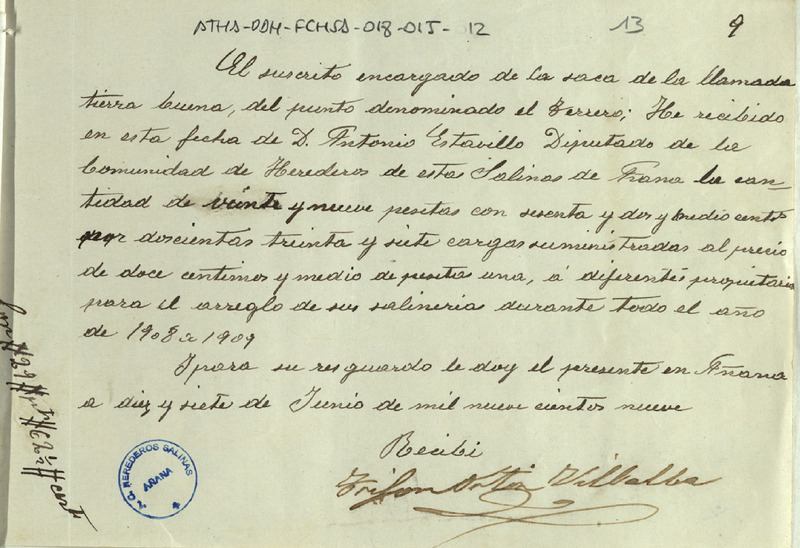 ATHA-DDH-FCHSA-018-015-12 13 9
El suscrito encargado de la saca de la llamada
tierra buena, del punto denominado el Ferrero; He recibido
en esta fecha de D. Antonio Estavillo Diputado de la
Comunidad de Herederos de estas Salinas de Añana la can-
tidad de veinte y nueve pesetas con sesenta y dos y medio cents
por doscientas treinta y siete cargas suministradas al precio
de doce centimos y medio de peseta una, á diferentes propietarios
para el arreglo de sus salineria durante todo el año
de 1908 a 1909
I para su resguardo le doy el presente en Añana
a diez y siete de Junio de mil nueve cientos nueve
Recibi
Villalba
HEREDEROS SALINAS
AÑANA